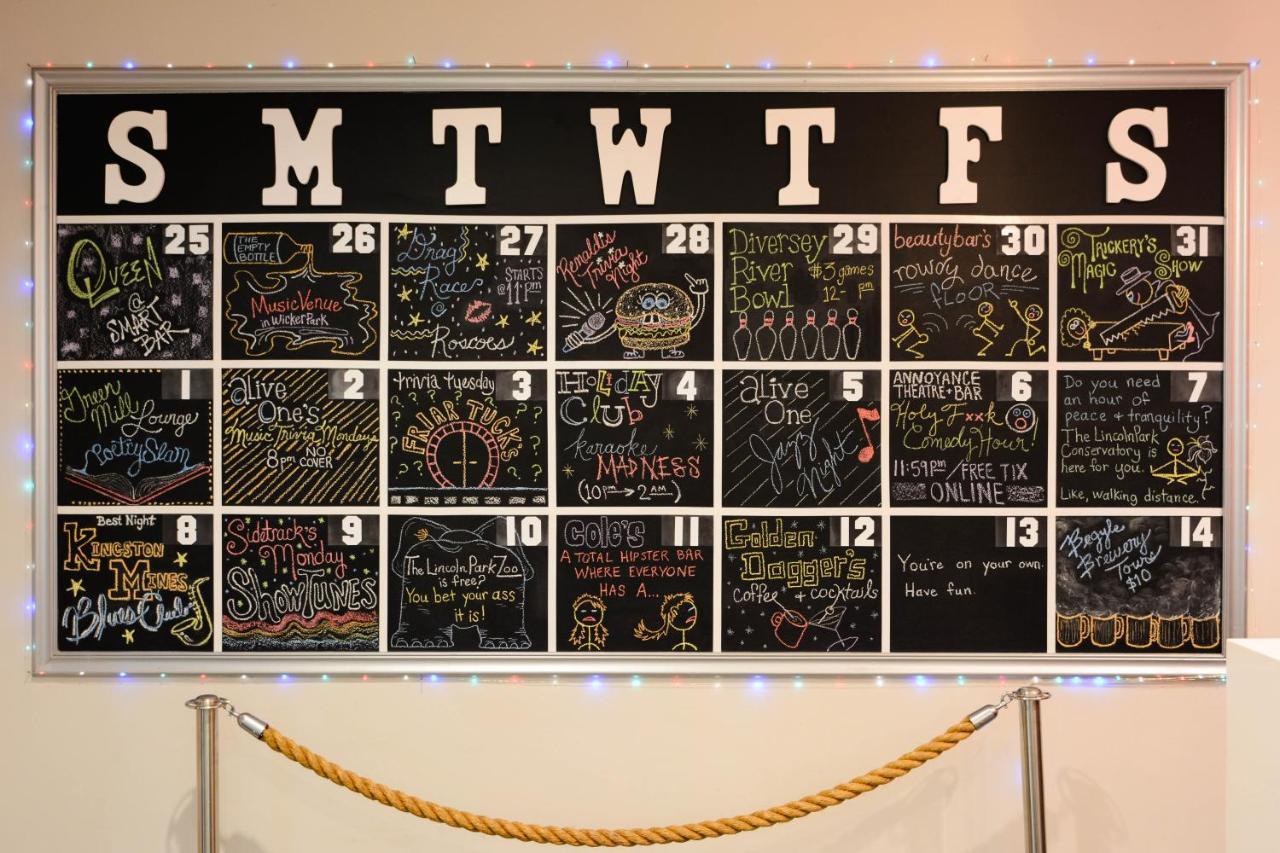 S M T W T F S
25
QUEEN
@
SMART
BAR
26
THE
EMPTY
BOTTLE
Music Venue
in Wicker Park
27
Drag
Races
STARTS
@ 11 pm
Roscoes
28
Trivia
Night
29
Diversey
River
Bowl
$3 games
12- pm
30
beautybar's
rowdy dance
FLOOR
31
TRICKERY'S
MAGIC SHOW
1
Green
Mill Lounge
Poetry Slam
2
alive
One's
Music Trivia Mondays
NO
8pm COVER
3
trivia tuesday
FRIAR TUCKS
4
HOLiDAY
Club
karaoke
MADNESS
(10pm → 2am)
5
alive
One
Jazz
Night
6
ANNOYANCE
THEATRE + BAR
Holy Fxxk
Comedy Hour!
11:59pm / FREE TIX
ONLINE
7
Do you need
an hour of
peace + tranquility?
The Lincoln Park
Conservatory is
here for you.
Like, walking distance.
8
Best Night
KINGSTON
MINES
Blues Club
9
Sidetrack's
Monday
SHOWTUNES
10
The Lincoln Park Zoo
is free?
You bet your ass
it is!
11
COLE'S
A TOTAL HIPSTER BAR
WHERE EVERYONE
HAS A...
12
Golden
Dagger's
coffee + cocktails
13
You're on your own.
Have fun.
14
Begyle
Brewery
Tours
$10